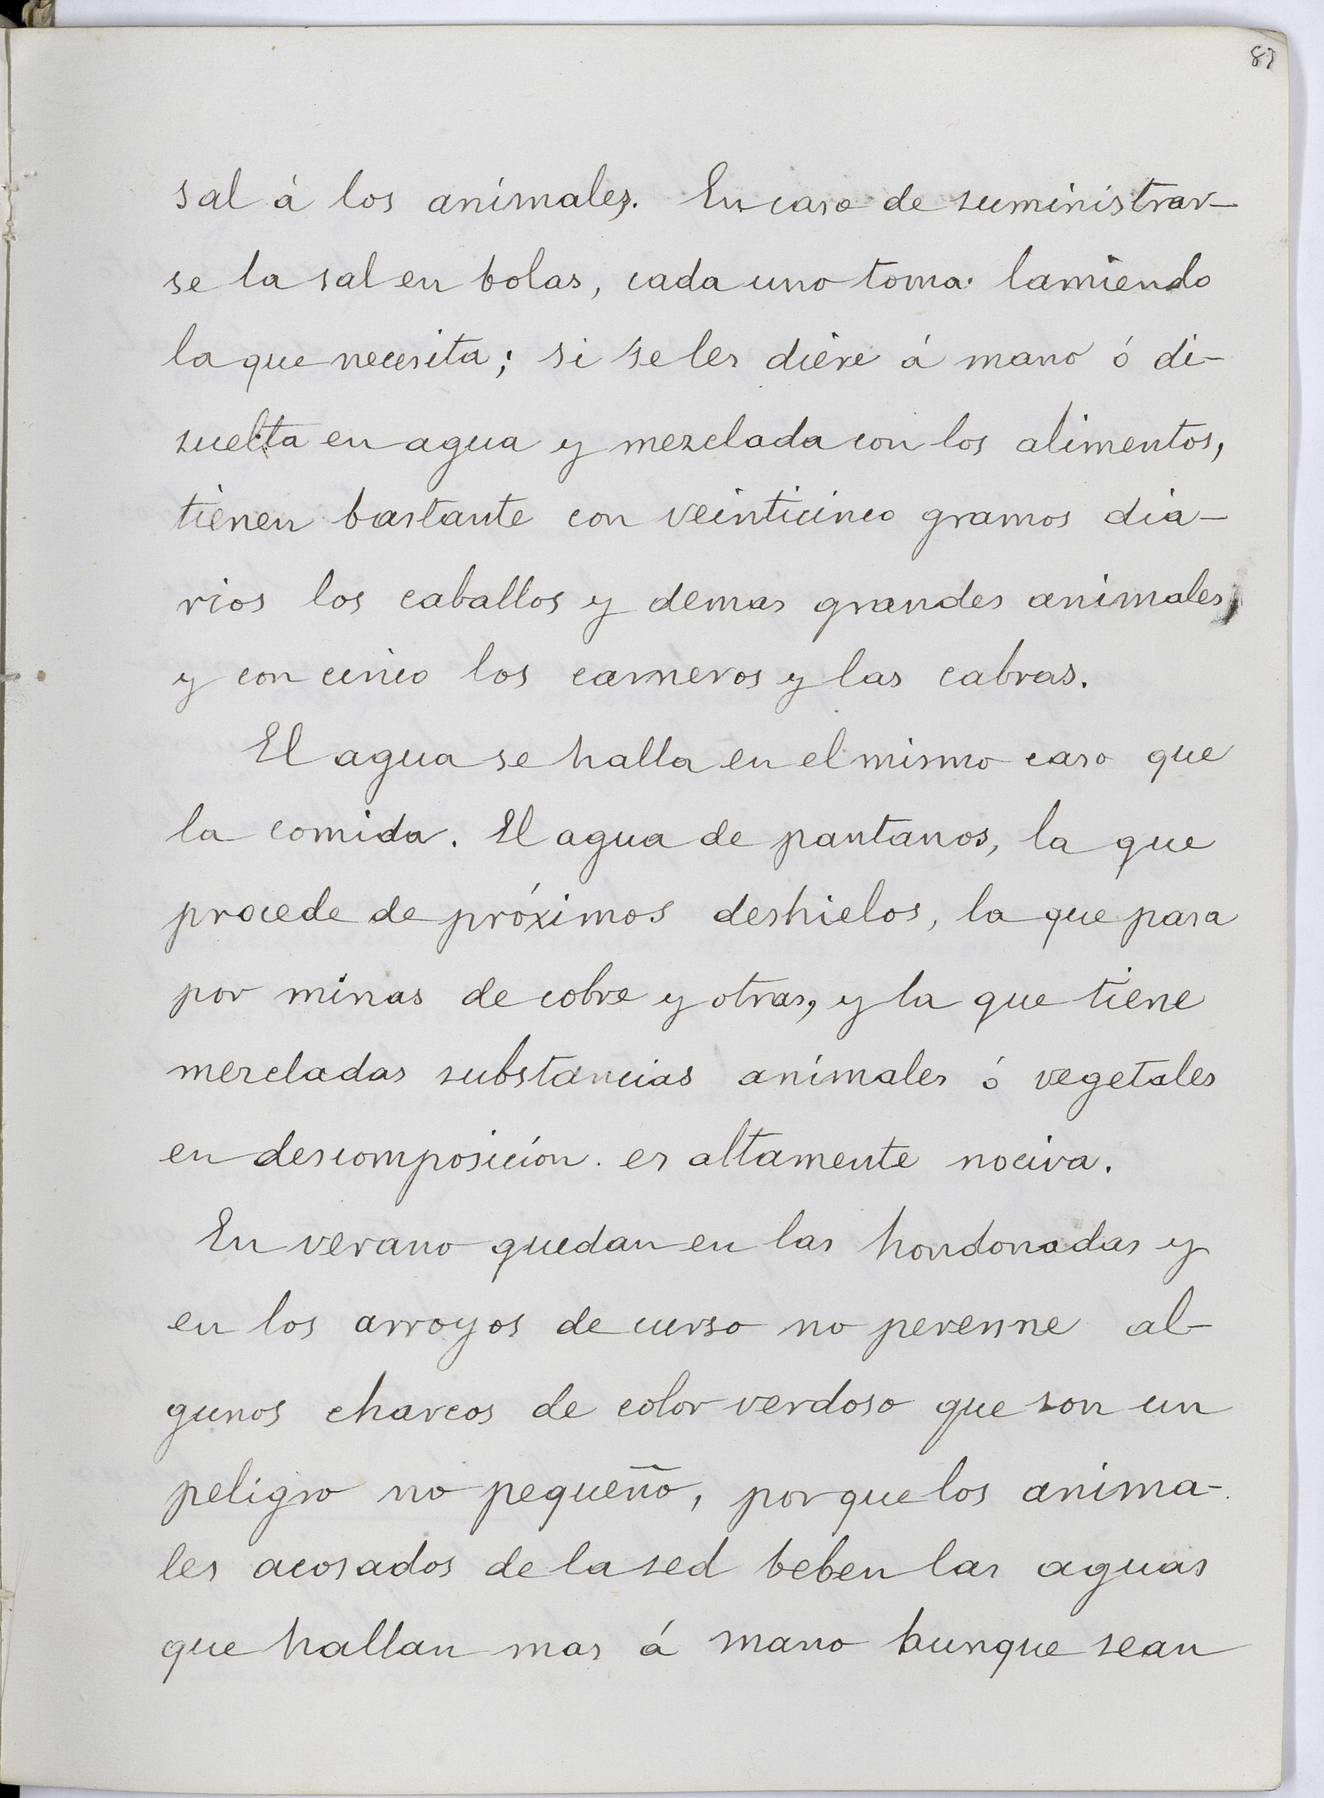 87
sal á los animales. En caso de suministrar-
se la sal en bolas, cada uno toma lamiendo
la que necesita; si se les diere á mano ó di-
suelta en agua y mezclada con los alimentos,
tienen bastante con veinticinco gramos dia-
rios los caballos y demas grandes animales,
y con cinco los carneros y las cabras.
El agua se halla en el mismo caso que
la comida. El agua de pantanos, la que
procede de próximos deshielos, la que pasa
por minas de cobre y otras, y la que tiene
mezcladas substancias animales ó vegetales
en descomposición es altamente nociva.
En verano quedan en las hondonadas y
en los arroyos de curso no perenne al-
gunos charcos de color verdoso que son un
peligro no pequeño, porque los anima-
les acosados de la sed beben las aguas
que hallan mas á mano aunque sean